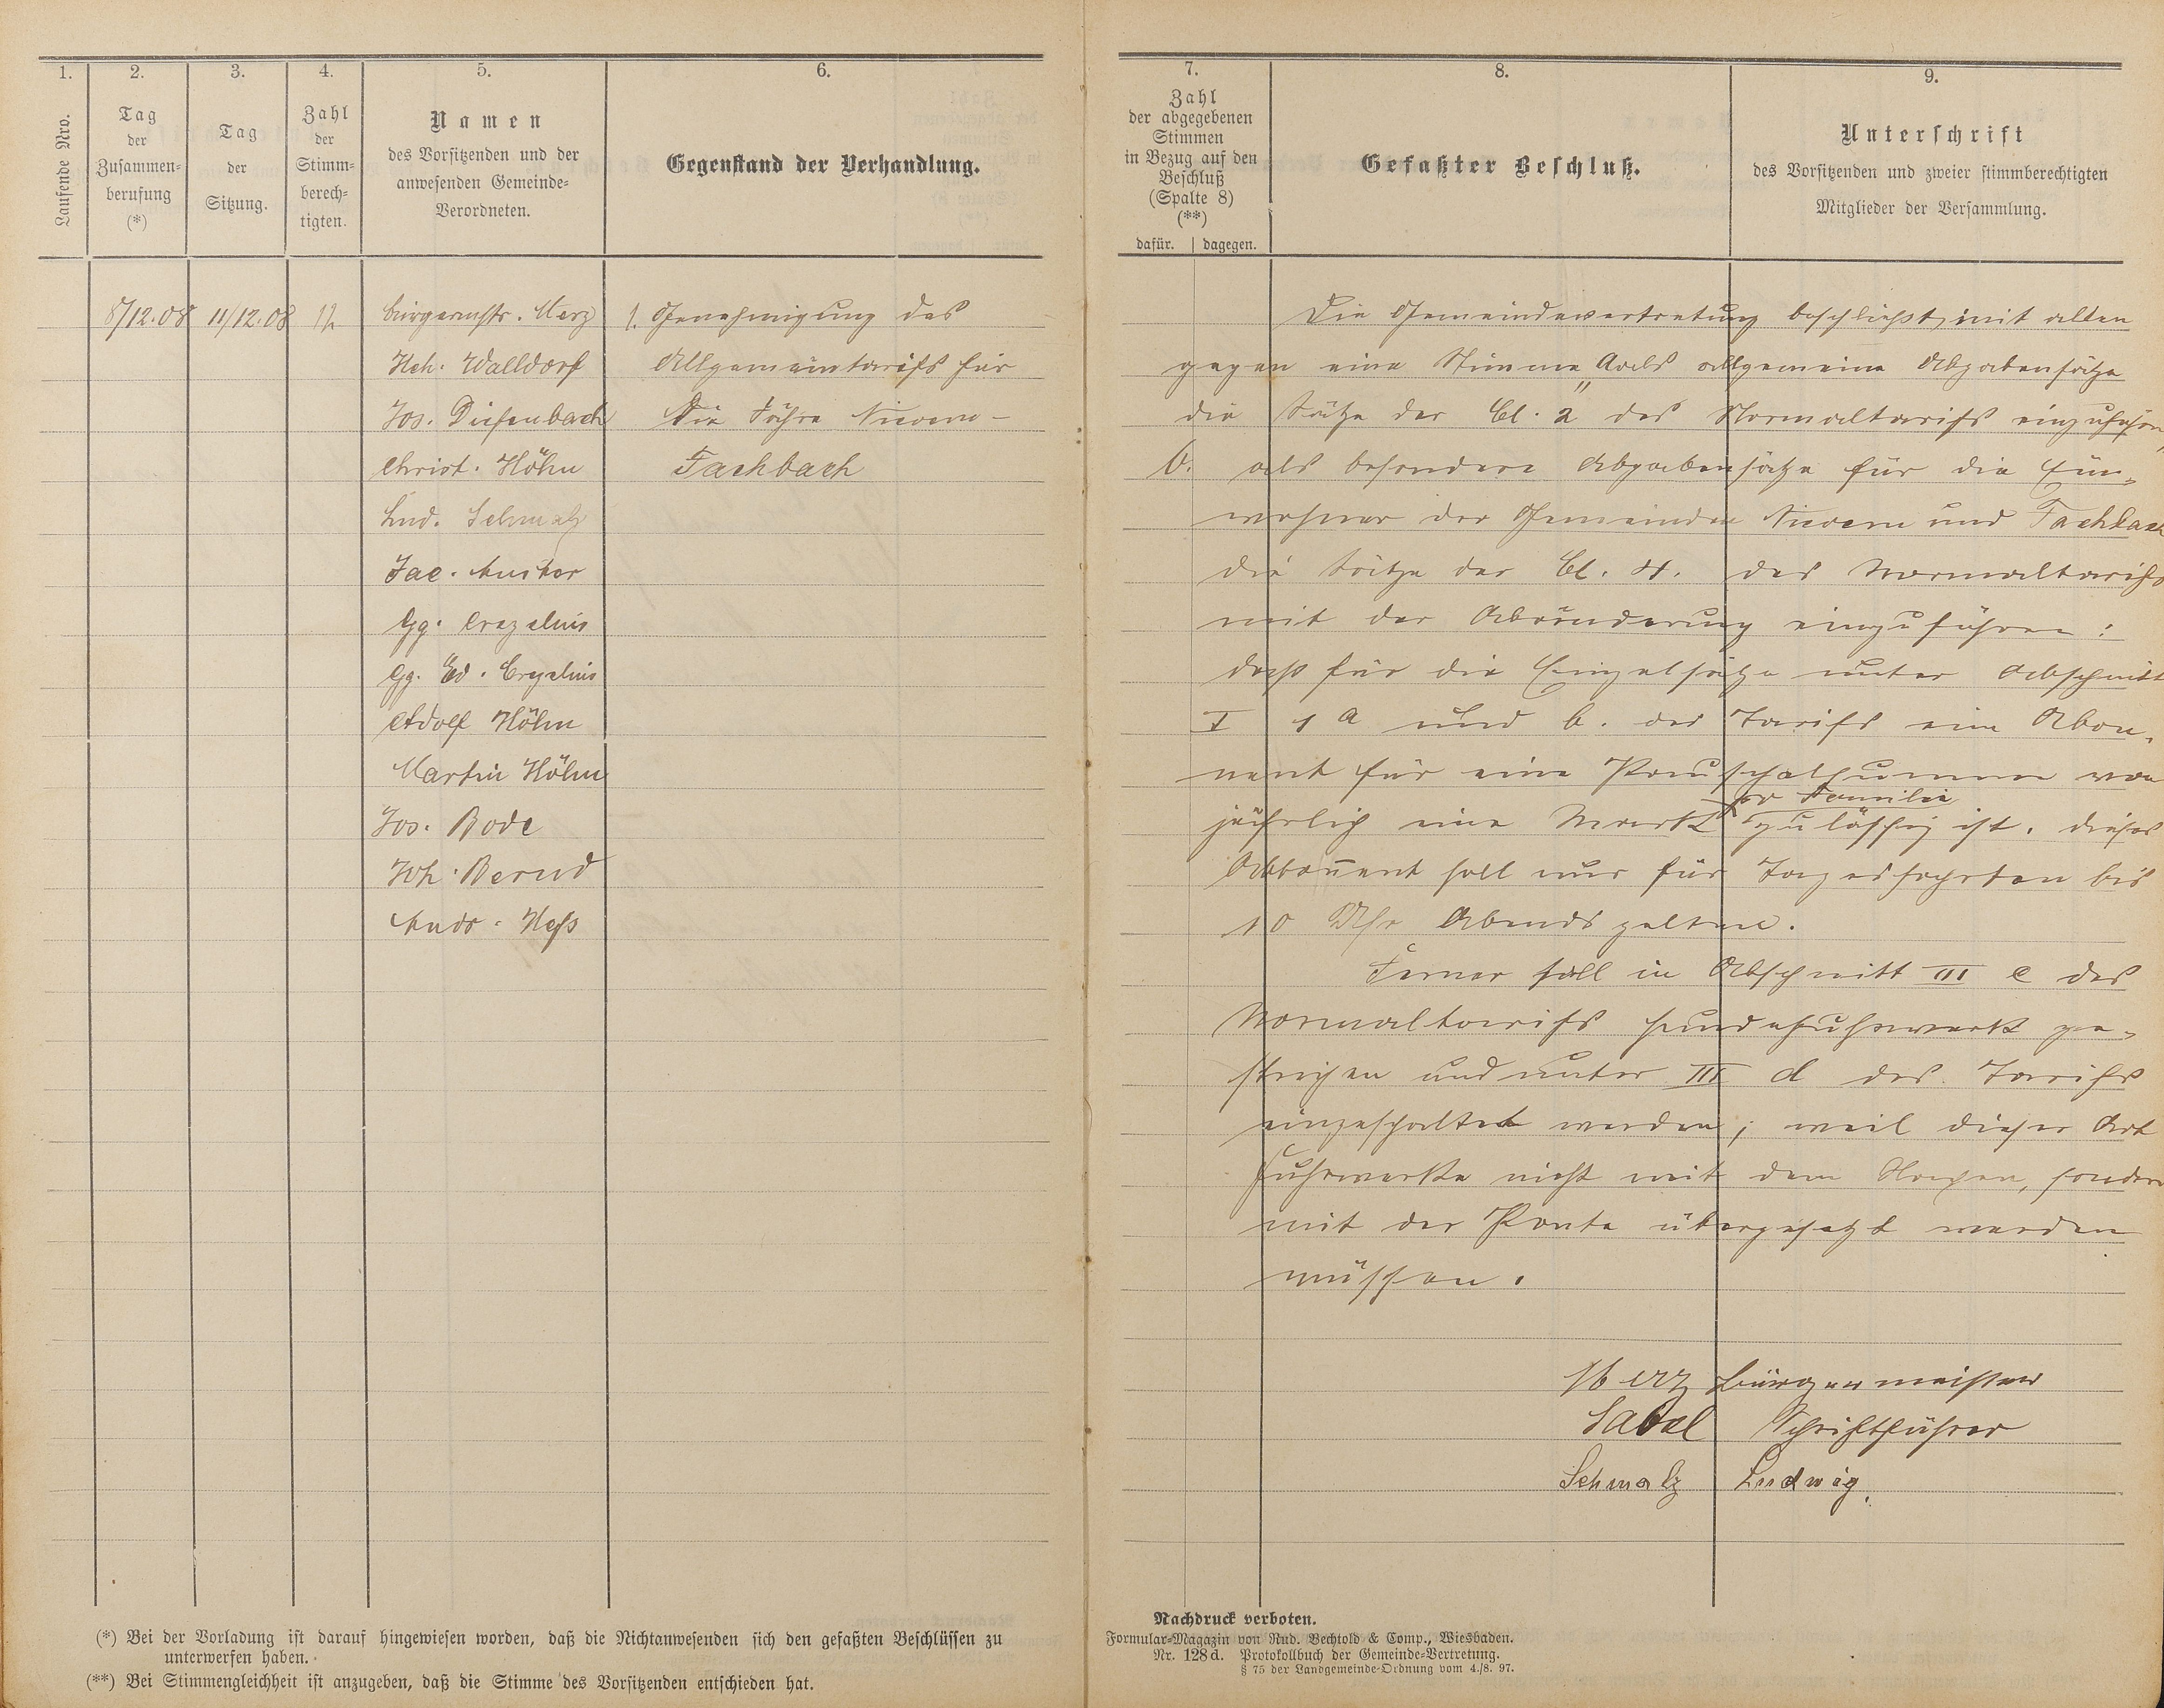 1.
2.
3.
4.
5.
6.
Laufende Nro.
Tag
der
Zusammen-
berufung
(*)
Tag
der
Sitzung.
Zahl
der
Stimm-
berech-
tigten.
Namen
des Vorsitzenden und der
anwesenden Gemeinde-
Verordneten.
Gegenstand der Verhandlung.
8/12.08 11/12.08 12 Bürgermstr. Merz 1. Genehmigung des
Hch. Walldorf Allgemeintarifs für
Jos. Diefenbach die Fähre Nievern-
Christ. Höhn Fachbach
Lud. Schmalz
Jac. Anker
Gg. Crezelius
Gg. Ed. Crezelius
Adolf Höhn
Martin Höhn
Jos. Bode
Joh. Bernd
Andr. Heß
(*) Bei der Vorladung ist darauf hingewiesen worden, daß die Nichtanwesenden sich den gefaßten Beschlüssen zu
unterwerfen haben.
(**) Bei Stimmengleichheit ist anzugeben, daß die Stimme des Vorsitzenden entschieden hat.
7.
8.
9.
Zahl
der abgegebenen
Stimmen
in Bezug auf den
Beschluß
(Spalte 8)
(**)
dafür. dagegen.
Gefaßter Beschluß.
Unterschrift
des Vorsitzenden und zweier stimmberechtigten
Mitglieder der Versammlung.
Die Gemeindevertretung beschließt, mit allen
gegen eine Stimme a als allgemeine Abgabensätze
die Sätze der Cl. 2 des Normaltarifs einzuführen,
b. als besondere Abgabensätze für die Ein-
wohner der Gemeinden Nievern und Fachbach
die Sätze der Cl. 4. des Normaltarifs
mit der Abänderung einzuführen:
daß für die Einzelsätze unter Abschnitt
I 1 a und b. des Tarifs ein Abon-
nent für eine Pauschalsumme von
jährlich eine Mark pro Familie zulässig ist. Dieses
Abbonnent soll nur für Tagesfahrten bis
10 Uhr Abends gelten.
Ferner soll in Abschnitt III c des
Normaltarifs Hundefuhrwerk ge-
strichen und unter III d des Tarifs
eingeschaltet werden; weil dieser Art
Fuhrwerke nicht mit dem Nachen, sondern
mit der Ponte übergesetzt werden
müssen.
Merz Bürgermeister
Sabel Schriftführer
Schmalz Ludwig.
Nachdruck verboten.
Formular-Magazin von Rud. Bechtold & Comp., Wiesbaden.
Nr. 128 d. Protokollbuch der Gemeinde-Vertretung.
§ 75 der Landgemeinde-Ordnung vom 4./8. 97.